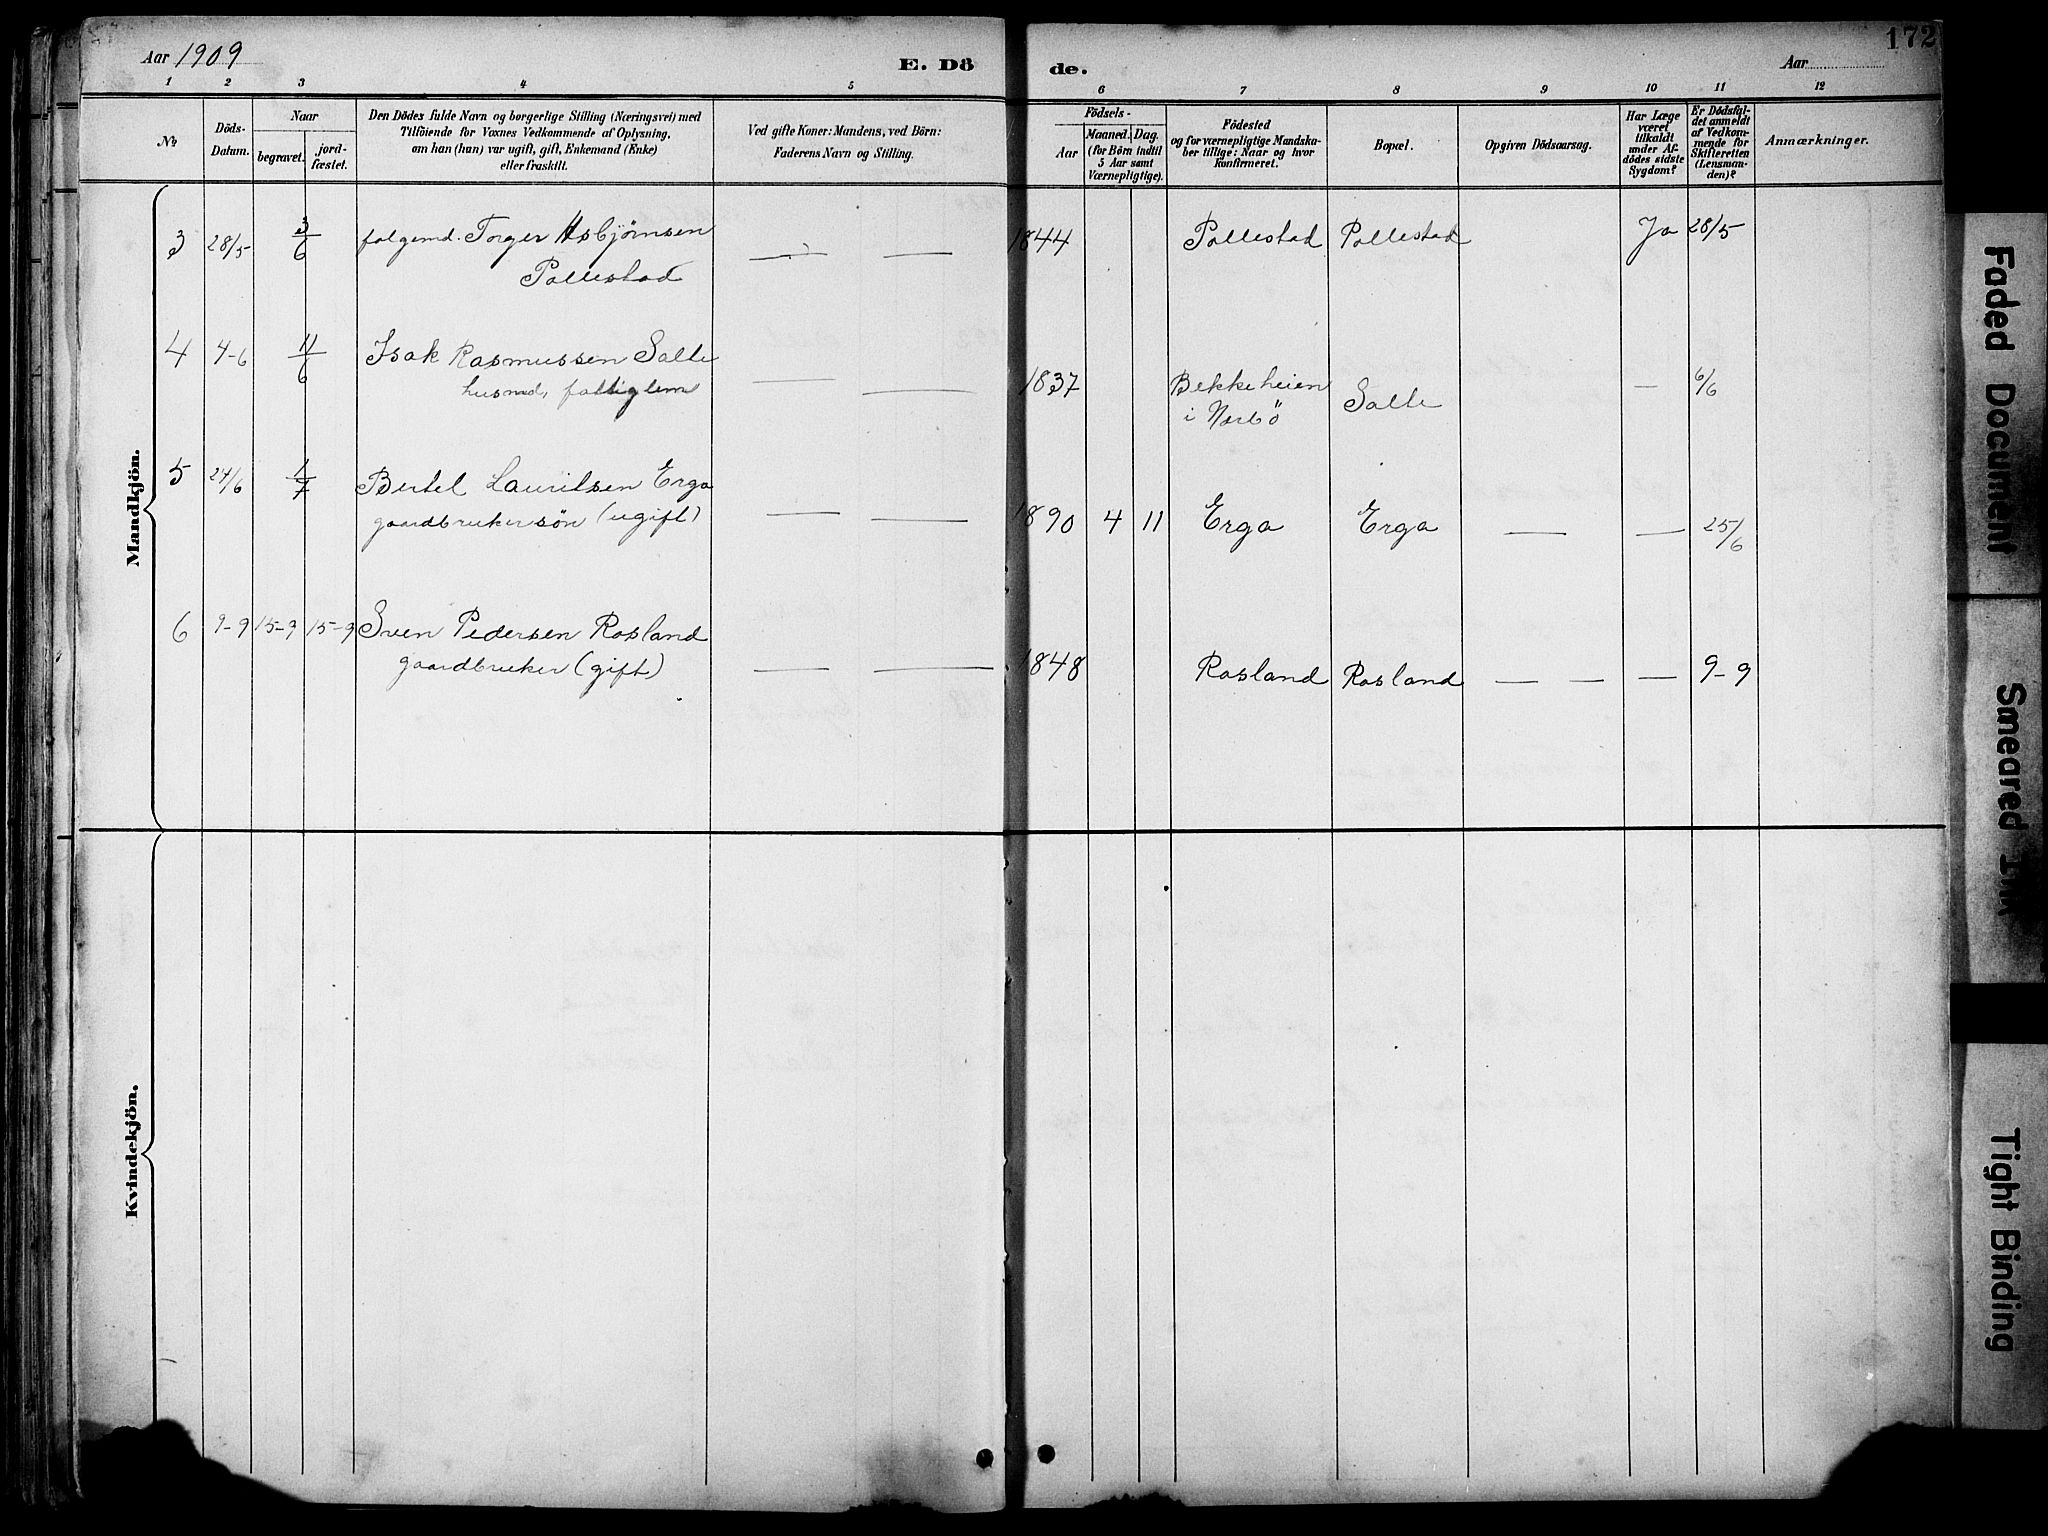 172
Aar 1909
E. Dö
de.
Aar
1 2 3 4 5 6 7 8 9 10 11 12
No
Döds-
Datum.
Naar
begravet.
jord-
fæstet.
Den Dödes fulde Navn og borgerlige Stilling (Næringsvei) med
Tilföiende for Voxnes Vedkommende af Oplysning,
om han (hun) var ugift, gift, Enkemand (Enke)
eller fraskilt.
Ved gifte Koner: Mandens, ved Börn:
Faderens Navn og Stilling.
Födsels-
Aar
Maaned. Dag.
(for Börn indtil
5 Aar samt
Værnepligtige).
Födested
og for værnepligtige Mandska-
ber tillige: Naar og hvor
konfirmeret.
Bopæl.
Opgiven Dödsaarsag.
Har Læge
været
tilkaldt
under Af-
dödes sidste
Sygdom?
Er Dödsfal-
det anmeldt
af Vedkom-
mende for
Skifteretten
(Lensman-
den)?
Anmærkninger.
Mandkjön.
3 28/5 3/6 folgemd. Torger Asbjørnsen 1844 Pollestad Pollestad Ja 28/5
Pollestad
4 4-6 11/6 Isak Rasmussen Salte
husmd, fattiglem 1837 Bekkeheien Salte — 6/6
i Nærbö
5 24/6 1/7 Bertel Lauritsen Erga
gaardbruker sön (ugift) 1890 4 11 Erga Erga — — 25/6
6 9-9 15-9 15-9 Sven Pedersen Rosland
gaardbruker (gift) 1848 Rosland Rosland — — — 9-9
Kvindekjön.
Faded Document
Smeared Ink
Tight Binding